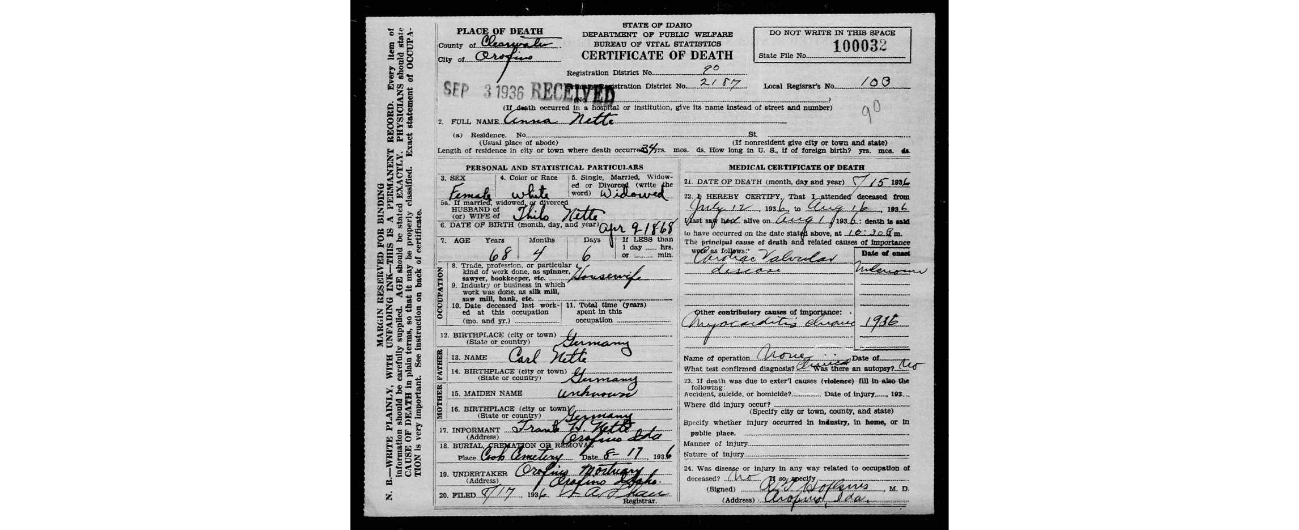 MARGIN RESERVED FOR BINDING
N. B.—WRITE PLAINLY, WITH UNFADING INK—THIS IS A PERMANENT RECORD. Every item of
information should be carefully supplied. AGE should be stated EXACTLY. PHYSICIANS should state
CAUSE OF DEATH in plain terms, so that it may be properly classified. Exact statement of OCCUPA-
TION is very important. See instruction on back of certificate.
STATE OF IDAHO
DEPARTMENT OF PUBLIC WELFARE
BUREAU OF VITAL STATISTICS
CERTIFICATE OF DEATH
PLACE OF DEATH
County of Clearwater
City of Orofino
DO NOT WRITE IN THIS SPACE
State File No. 100032
Registration District No. 90
Registration District No. 2187
Local Registrar's No. 103
SEP 3 1936 RECEIVED
(If death occurred in a hospital or institution, give its name instead of street and number)
90
2. FULL NAME Anna Nette
(a) Residence. No. St.
(Usual place of abode) (If nonresident give city or town and state)
Length of residence in city or town where death occurred 34 yrs. mos. ds. How long in U. S., if of foreign birth? yrs. mos. ds.
PERSONAL AND STATISTICAL PARTICULARS
3. SEX Female
4. Color or Race White
5. Single, Married, Widow-
ed or Divorced (write the
word) Widowed
5a. If married, widowed, or divorced
HUSBAND of
(or) WIFE of Thilo Nette
6. DATE OF BIRTH (month, day, and year) Apr 9-1868
7. AGE Years Months Days If LESS than
1 day hrs.
or min.
68 4 6
OCCUPATION
8. Trade, profession, or particular
kind of work done, as spinner,
sawyer, bookkeeper, etc. Housewife
9. Industry or business in which
work was done, as silk mill,
saw mill, bank, etc.
10. Date deceased last work-
ed at this occupation
(mo. and yr.)
11. Total time (years)
spent in this
occupation
12. BIRTHPLACE (city or town)
(State or country) Germany
FATHER
13. NAME Carl Nette
14. BIRTHPLACE (city or town)
(State or country) Germany
MOTHER
15. MAIDEN NAME Unknown
16. BIRTHPLACE (city or town)
(State or country) Germany
17. INFORMANT Frank H. Nette
(Address) Orofino Ida
18. BURIAL, CREMATION OR REMOVAL
Place Cook Cemetery Date 8-17, 1936
19. UNDERTAKER Orofino Mortuary
(Address) Orofino Idaho.
20. FILED 8/17 1936
Registrar.
MEDICAL CERTIFICATE OF DEATH
21. DATE OF DEATH (month, day and year) 8/15 1936
22. I HEREBY CERTIFY, That I attended deceased from
July 12, 1936, to Aug 16, 1936
I last saw h alive on Aug 1 1936; death is said
to have occurred on the date stated above, at 10:20 m.
The principal cause of death and related causes of importance
were as follows:
Date of onset
Cardiac Valvular
disease
Unknown
Other contributory causes of importance:
Myocarditis chronic 1936
Name of operation None Date of
What test confirmed diagnosis? Clinical Was there an autopsy? No
23. If death was due to exter'l causes (violence) fill in also the
following:
Accident, suicide, or homicide? Date of injury 193
Where did injury occur?
(Specify city or town, county, and state)
Specify whether injury occurred in industry, in home, or in
public place.
Manner of injury
Nature of injury
24. Was disease or injury in any way related to occupation of
deceased? No If so, specify
(Signed) Hopkins, M. D.
(Address) Orofino, Ida.